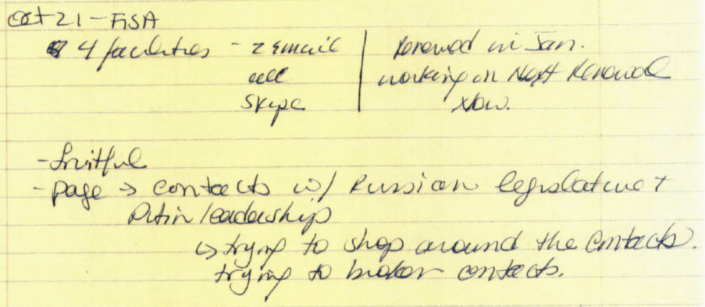 Oct 21 - FISA
4 facilities - 2 email | Renewed in Jan.
cell | working on Next Renewal
Skype | Now.
- fruitful
- page → contacts w/ Russian legislature +
Putin leadership
↳ trying to shop around the contacts.
trying to broker contacts.